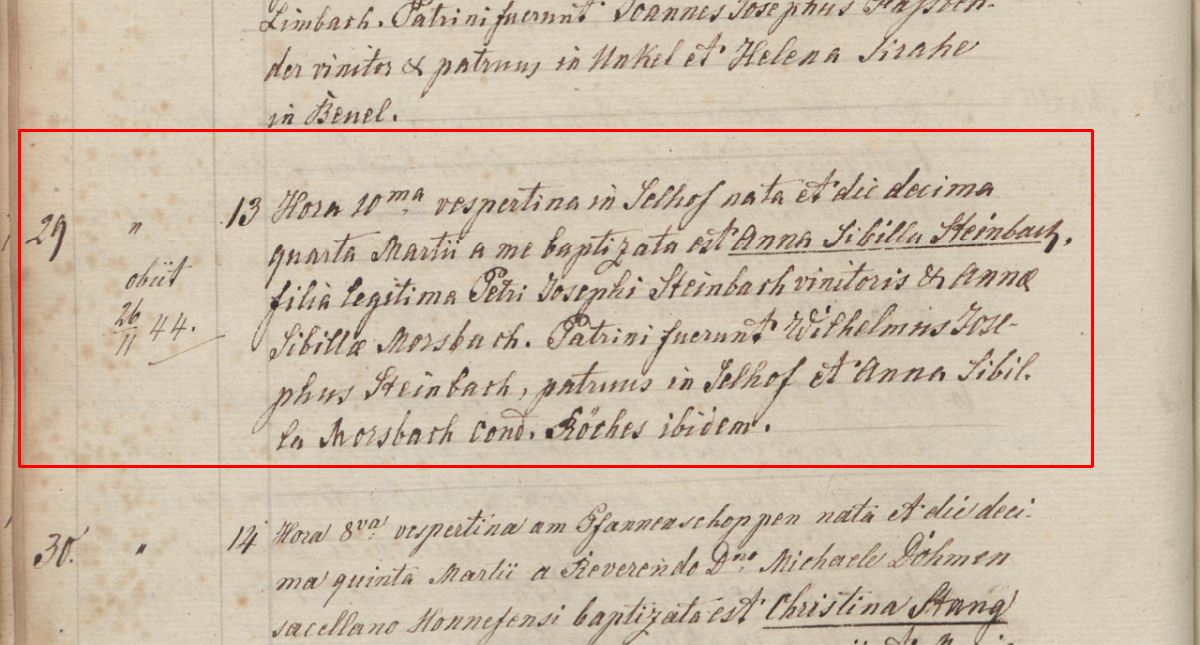 Limbach. Patrini fuerunt Joannes Josephus
der vinitor & patruus in Unkel et Helena Krahe
in Beuel.
29 " 13 Hora 10ma vespertina in Selhof nata et die decima
quarta Martii a me baptizata est Anna Sibilla Steinbach,
obiit
filia legitima Petri Josephi Steinbach vinitoris & Annæ
26/11 44.
Sibillæ Morsbach. Patrini fuerunt Wilhelmus Jose-
phus Steinbach, patruus in Selhof et Anna Sibil-
la Morsbach cond. Röches ibidem.
30. " 14 Hora 8va vespertina am Pfannenschoppen nata et die deci-
ma quinta Martii a Reverendo Dno Michaele Döhmen
sacellano Honnefensi baptizata est Christina Stang